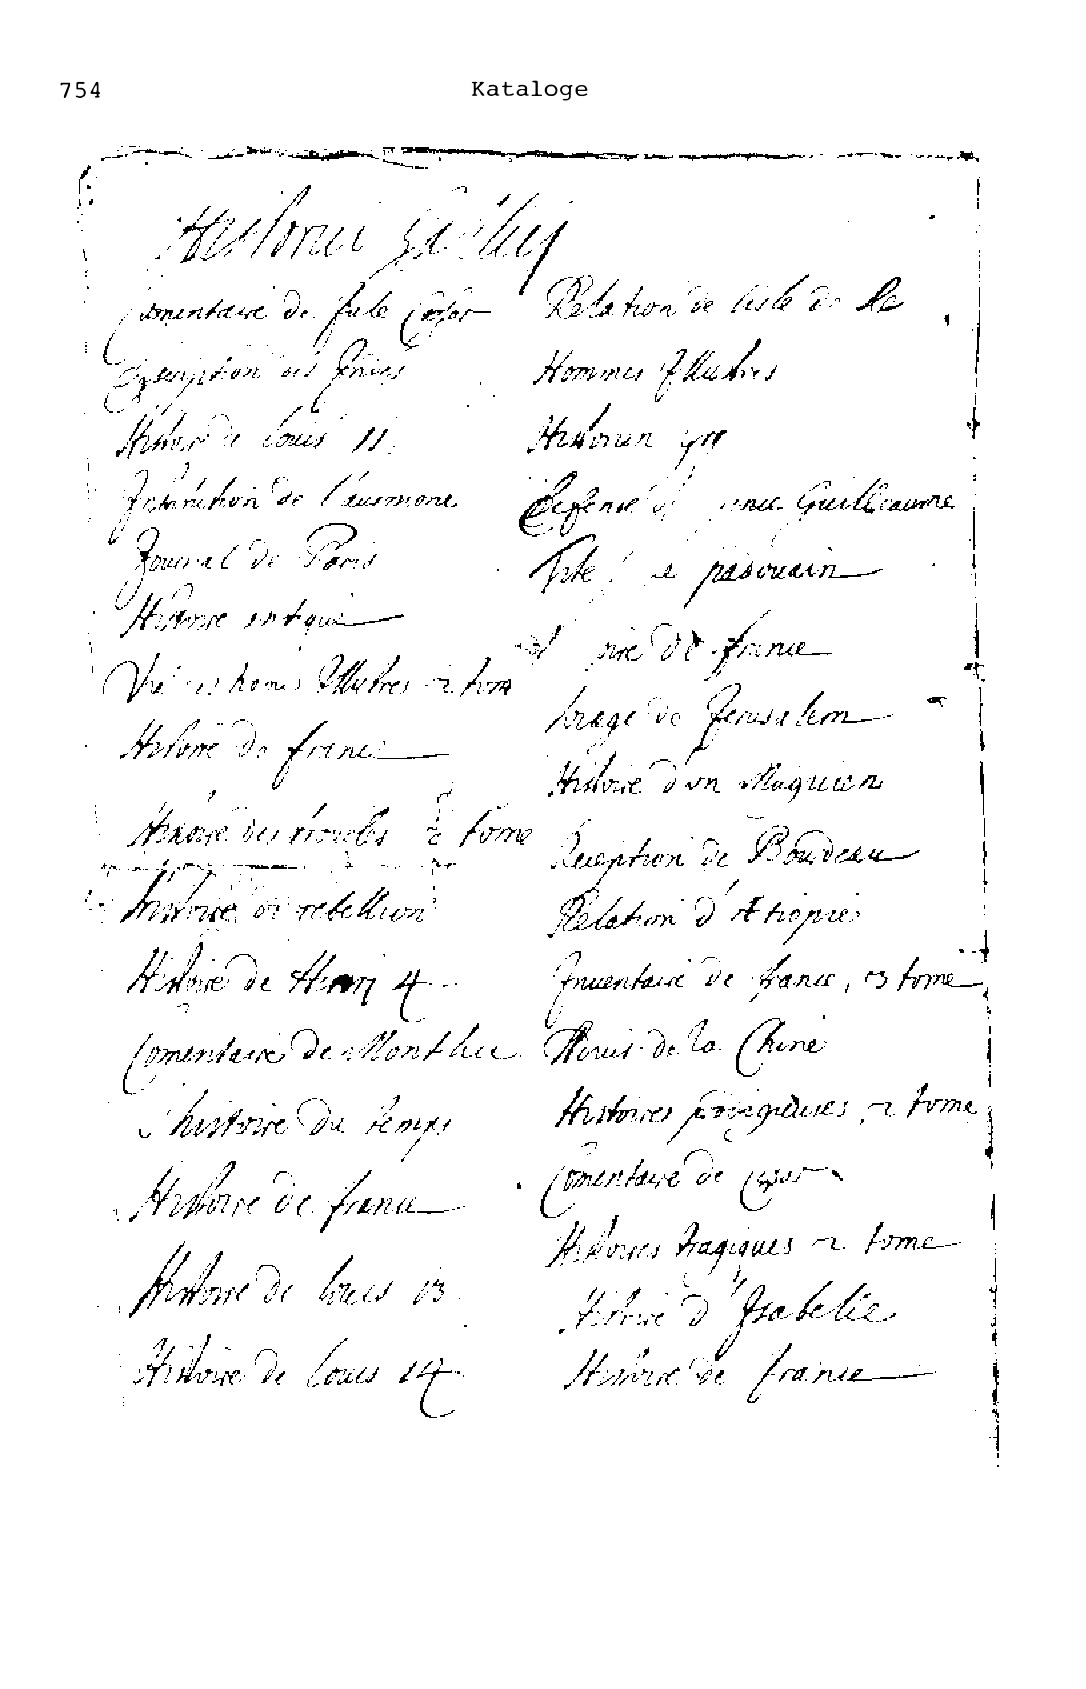 754 Kataloge
Historici
Comentaire de Jule Cesar
des Indes
Histoire de Louis 11.
de l'ausmone
Journal de Paris
Histoire antique
Vie homes Illustres 2 tom
Histoire de france
Histoire des troubles 2 tome
histoire de rebellion
Histoire de Henri 4
Comentaire de Monthuc
l'histoire du temps
Histoire de france
Histoire de Louis 13
Histoire de Louis 14
Relation de lisle de Re
Hommes Illustres
Historien
Defense Guilleaume
Tite le padouain
de france
de Jerusalem
Histoire d'un Magicien
Reception de Bourdeau
Relation d'Etiopie
Inventaire de france, 3 tome
de la Chine
Histoires prodigieuses, 2 tome
Comentaire de Cesar
Histoires tragiques 2 tome
Histoire d'Isabelle
Histoire de france